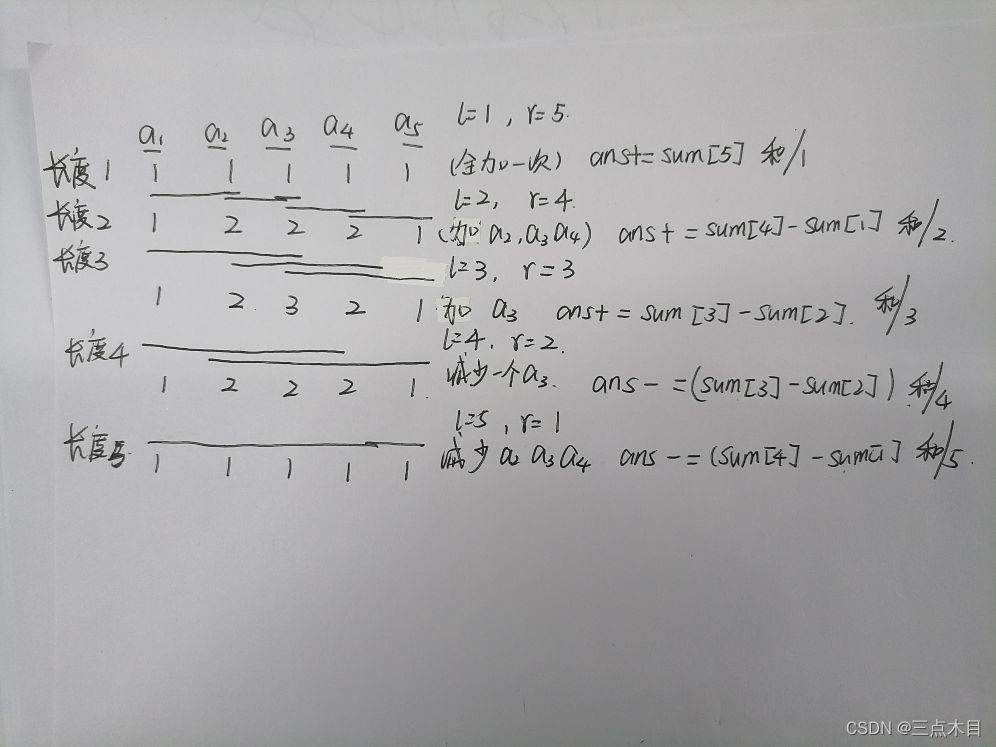 a₁ a₂ a₃ a₄ a₅ l=1, r=5.
长度1 1 1 1 1 1 (全加一次) ans+=sum[5] 和/1
l=2, r=4.
长度2 1 2 2 2 1 (加 a₂,a₃ a₄) ans+=sum[4]-sum[1] 和/2.
长度3 l=3, r=3
1 2. 3 2 1 加 a₃ ans+=sum[3]-sum[2]. 和/3
长度4 l=4, r=2.
1 2 2 2 1. 减少一个a₃. ans-=(sum[3]-sum[2]) 和/4
长度5 l=5, r=1
1 1 1 1 1 减少 a₂ a₃ a₄ ans-=(sum[4]-sum[1] 和/5.
CSDN @三点木目